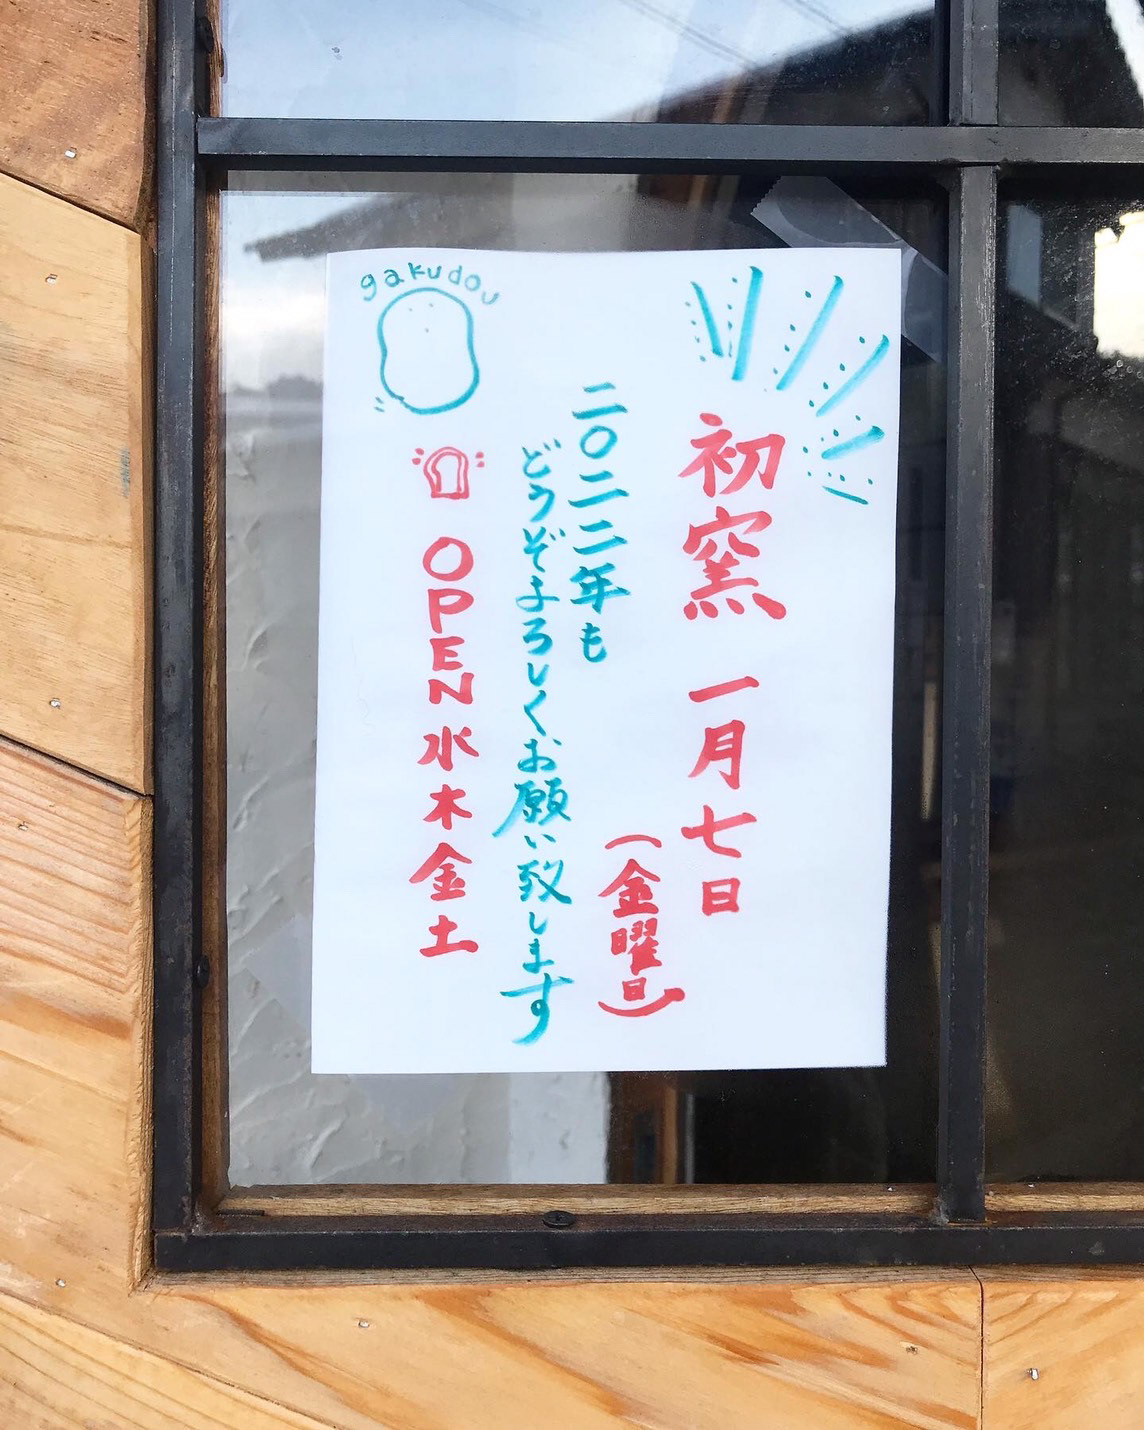 初窯 一月七日
(金曜日)
二〇二二年も
どうぞよろしくお願い致します
gakudou
OPEN 水木金土